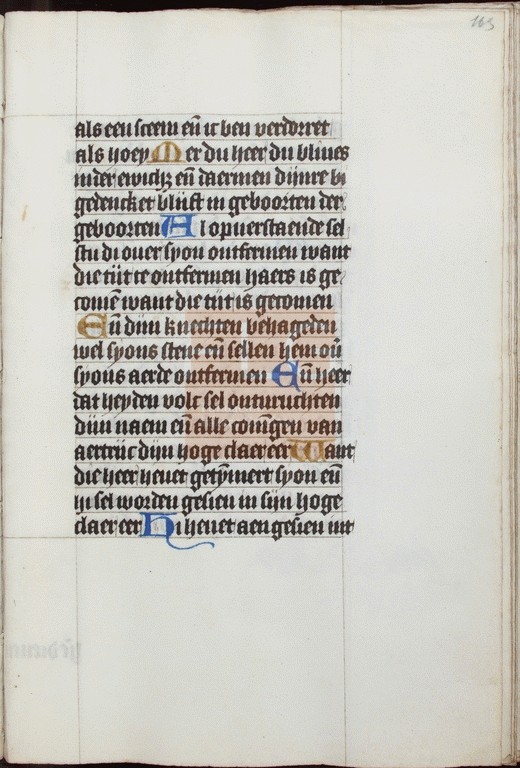 163
als een sceem eñ ic ben verdorret
als hoey Mer du heer du bliues
inder ewich₃ eñ daermen dijnre bi
gedencket blijft in geboorten der
geboorten Al opuerstaende sel
stu di ouer syon ontfermen want
die tijt te ontfermen haers is ge
comē want die tijt is gecomen
Eñ dijn knechten behageden
wel syons stene eñ sellen hem oũ
syons aerde ontfermen Eñ heer
dat heyden volc sel onturuchten
dijn naem eñ alle coningen van
aertrijc dijn hoge claer eer Want
die heer heuet getymert syon eñ
hi sel worden gesien in sijn hoge
claer eer Hi heuet aen gesien int